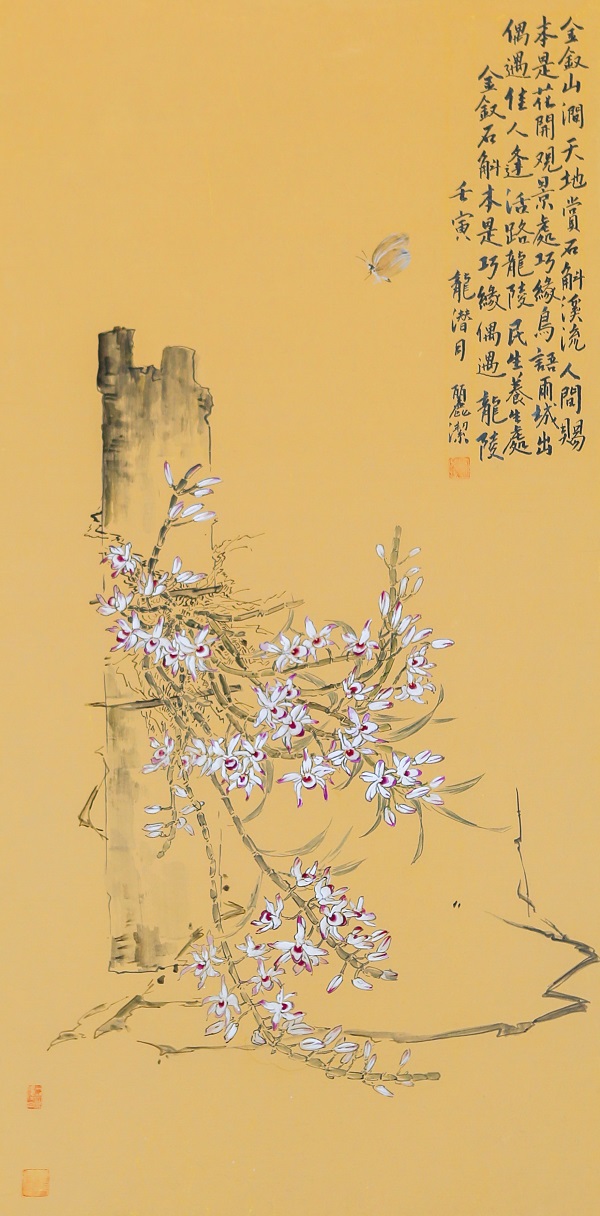 金釵山澗天地賞石斛溪流人間賜
本是花開观景處巧緣鳥語雨城出
偶遇佳人逢活路龍陵民生養生處
金釵石斛本是巧緣偶遇龍陵
壬寅龍潜月麗潔